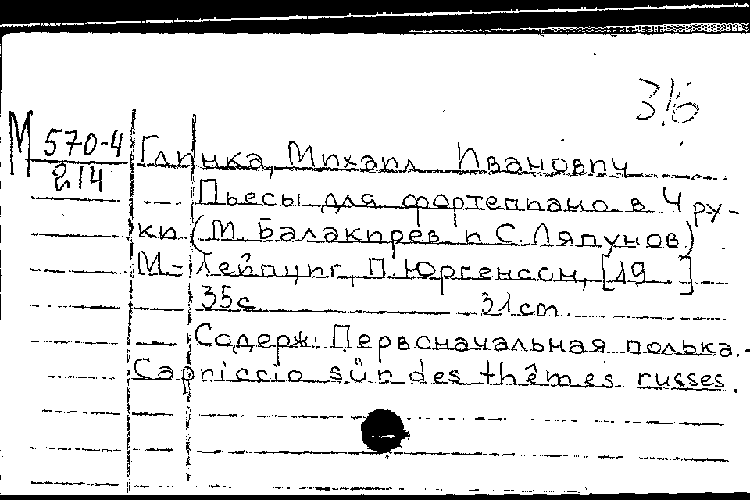 3!6
М 570-4
2.14
Глинка, Михаил Иванович
Пьесы для фортепиано в 4 ру-
ки (М. Балакирев и С. Ляпунов)
М.-Лейпциг, П. Юргенсон, [19 ]
35с 31 см.
Содерж: Первоначальная полька.-
Capriccio sür des thêmes russes.